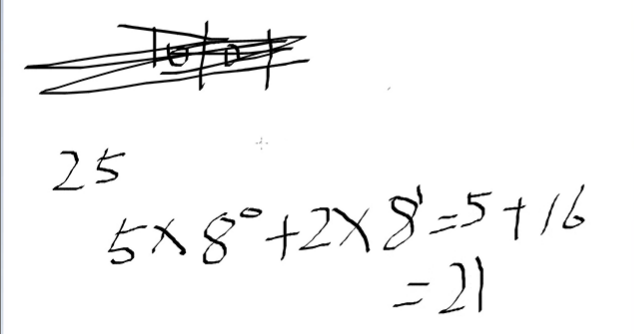 25
5×8⁰+2×8¹=5+16
=21